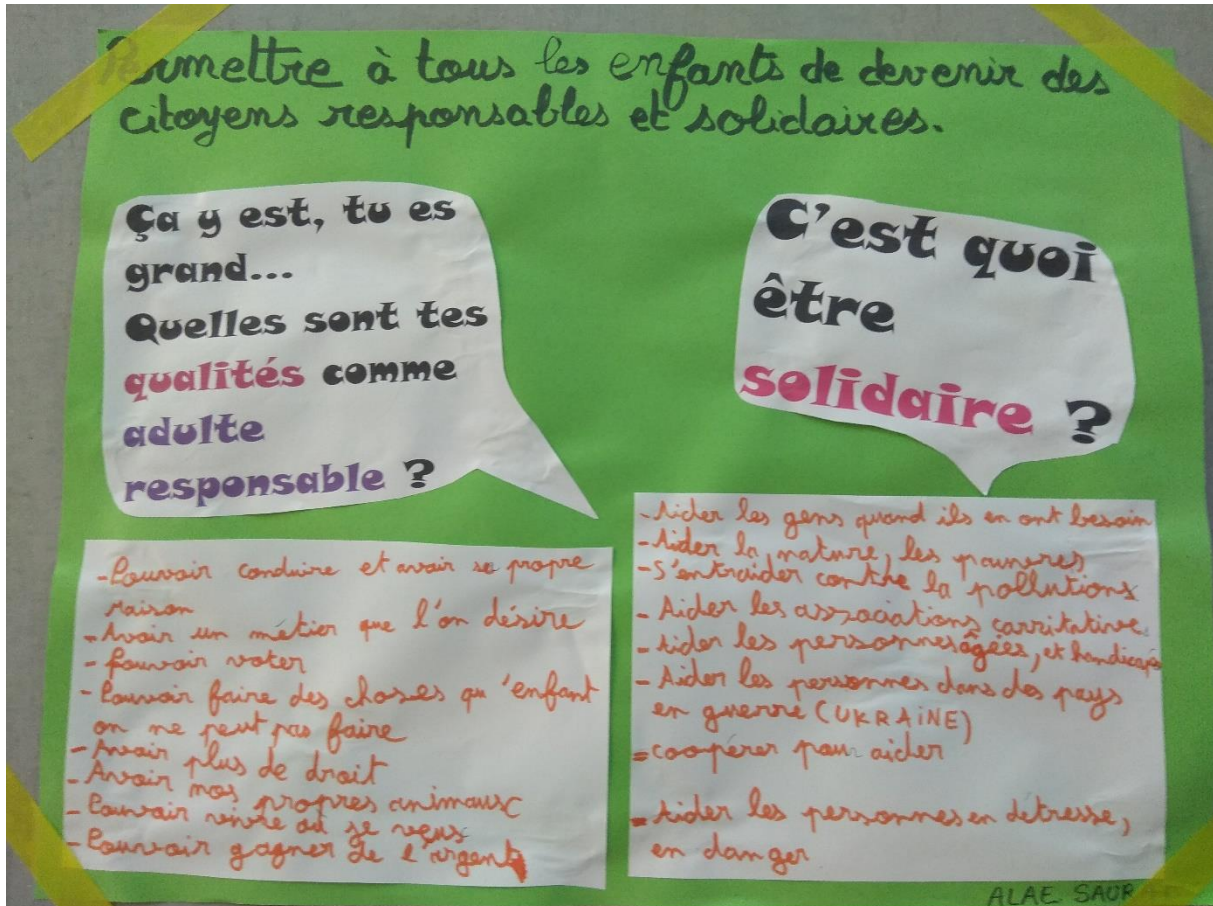 Permettre à tous les enfants de devenir des
citoyens responsables et solidaires.
Ça y est, tu es
grand...
Quelles sont tes
qualités comme
adulte
responsable ?
- Pouvoir conduire et avoir sa propre
maison
- Avoir un métier que l'on désire
- Pouvoir voter
- Pouvoir faire des choses qu'enfant
on ne peut pas faire
- Avoir plus de droit
- Avoir nos propres animaux
- Pouvoir vivre où je veux
- Pouvoir gagner de l'argent
C'est quoi
être
solidaire ?
- Aider les gens quand ils en ont besoin
- Aider la nature, les pauvres
- S'entraider contre la pollutions
- Aider les associations carritative
- Aider les personnes âgées, et handicapé
- Aider les personnes dans des pays
en guerre (UKRAiNE)
- coopérer pour aider
- Aider les personnes en detresse,
en danger
ALAE